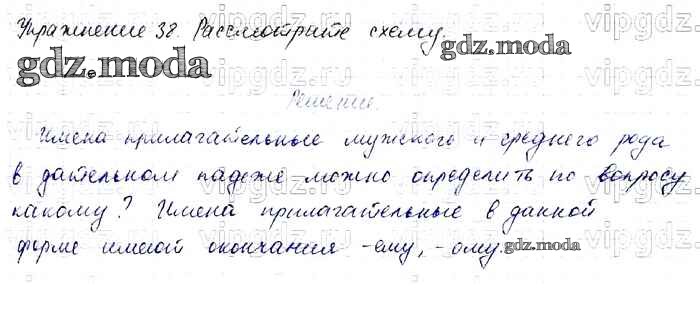 Упражнение 38. Рассмотрите схему.
gdz.moda
Решение.
Имена прилагательные мужского и среднего рода
в дательном падеже можно определить по вопросу
какому? Имена прилагательные в данной
форме имеют окончания -ему, -ому.
gdz.moda
vipgdz.ru